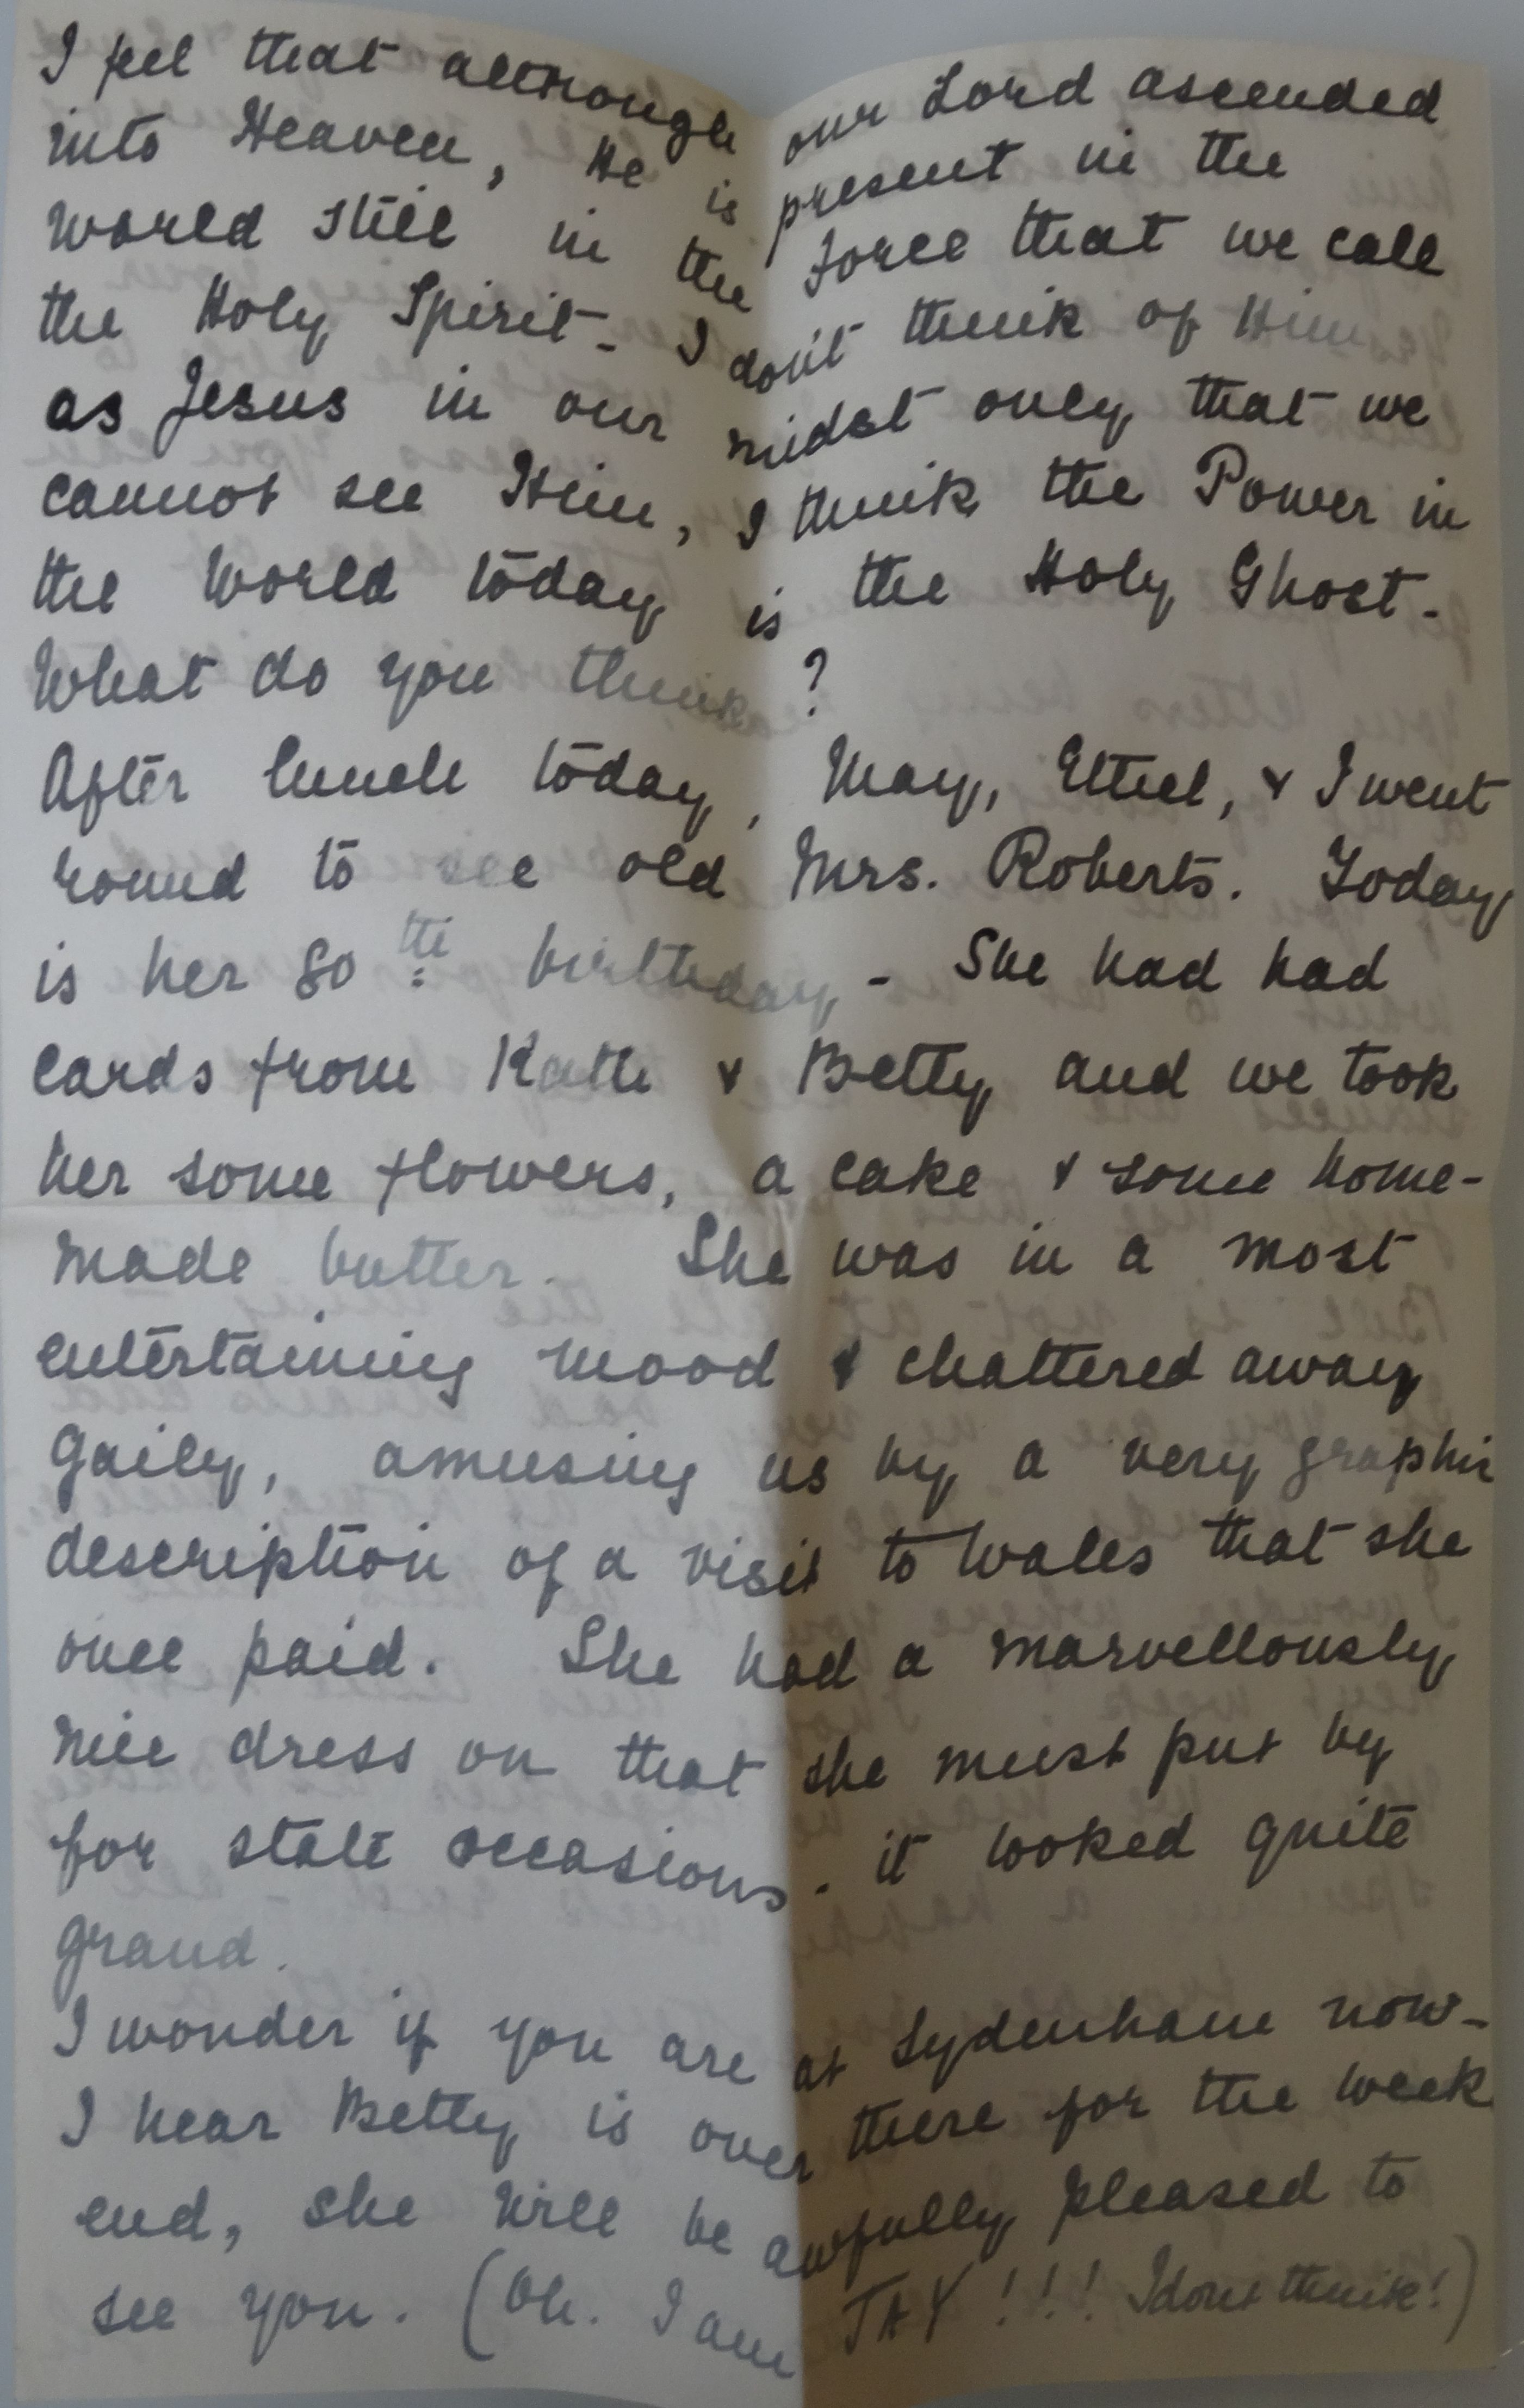 I feel that although our Lord ascended
into Heaven, He is present in the
world still in the force that we call
the Holy Spirit - I don't think of Him
as Jesus in our midst only that we
cannot see Him, I think the Power in
the World today is the Holy Ghost -
What do you think ?
After lunch today, May, Ethel, & I went
round to see old Mrs. Roberts. Today
is her 80th birthday - She had had
cards from Kath & Betty and we took
her some flowers, a cake & some home-
made butter. She was in a most
entertaining mood & chattered away
gaily, amusing us by a very graphic
description of a visit to Wales that she
once paid. She had a marvellously
nice dress on that she must put by
for state occasions. it looked quite
grand.
I wonder if you are at Sydenham now -
I hear Betty is over there for the week
end, she will be awfully pleased to
see you. (Oh. I am !!! I dont think!)